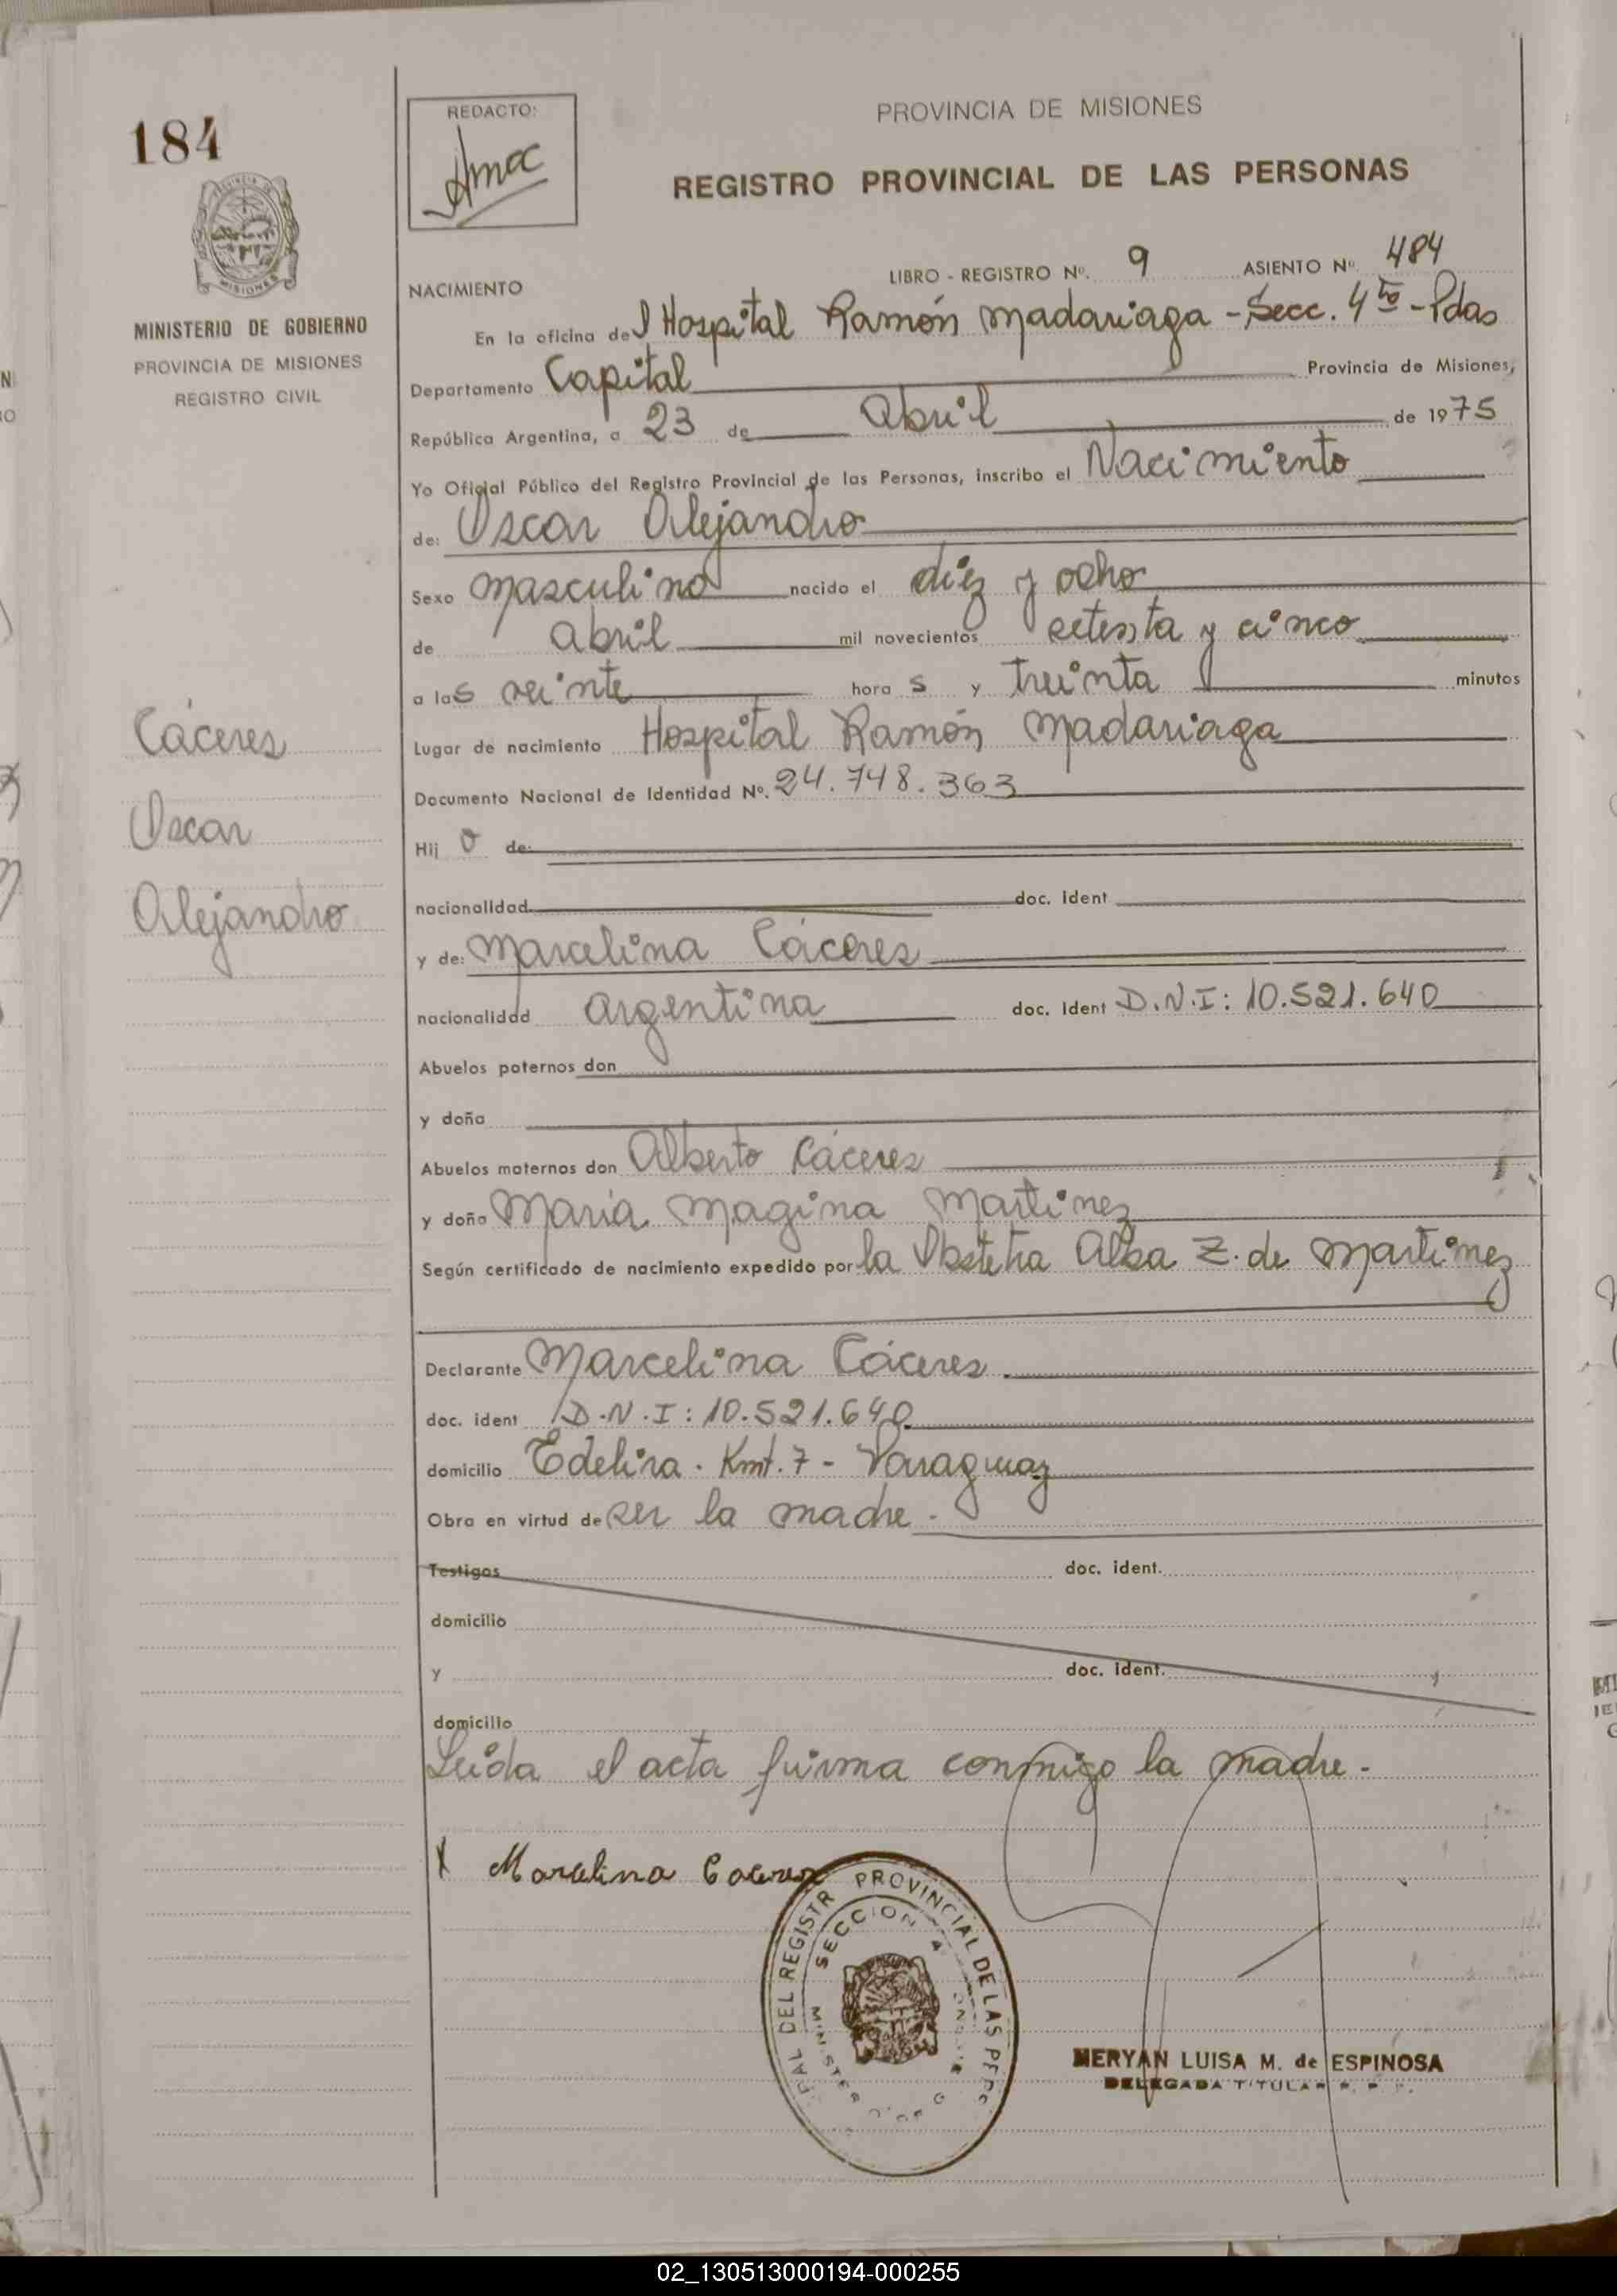 184
MINISTERIO DE GOBIERNO
PROVINCIA DE MISIONES
REGISTRO CIVIL
Cáceres
Oscar
Alejandro
REDACTO:
PROVINCIA DE MISIONES
REGISTRO PROVINCIAL DE LAS PERSONAS
NACIMIENTO LIBRO - REGISTRO Nº. 9 ASIENTO Nº 484
En la oficina del Hospital Ramón Madariaga - Secc. 4ta - Pdas
Departamento Capital Provincia de Misiones,
República Argentina, a 23 de Abril de 1975
Yo Oficial Público del Registro Provincial de las Personas, inscribo el Nacimiento
de: Oscar Alejandro
Sexo masculino nacido el diez y ocho
de abril mil novecientos setenta y cinco
a las veinte hora s y treinta minutos
Lugar de nacimiento Hospital Ramón Madariaga
Documento Nacional de Identidad Nº. 24.748.363
Hij o de:
nacionalidad doc. ident
y de: Marcelina Cáceres
nacionalidad argentina doc. ident D.N.I: 10.521.640
Abuelos paternos don
y doña
Abuelos maternos don Alberto Cáceres
y doña María Magina Martinez
Según certificado de nacimiento expedido por la Obstetra Alba Z. de Martinez
Declarante Marcelina Cáceres
doc. ident D.N.I: 10.521.640
domicilio Edelira. Kmt. 7 - Paraguay
Obra en virtud de ser la madre.
Testigos doc. ident.
domicilio
y doc. ident.
domicilio
Leída el acta firma conmigo la madre.
X Marcelina Caceres
PROVINCIAL DE LAS PERS
DEL REGISTR
SECCION 4
MERYAN LUISA M. de ESPINOSA
DELEGADA TITULAR R. P. P.
02_130513000194-000255